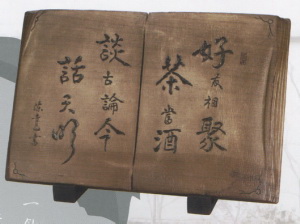 好友相聚
茶當酒
談古論今
話天明